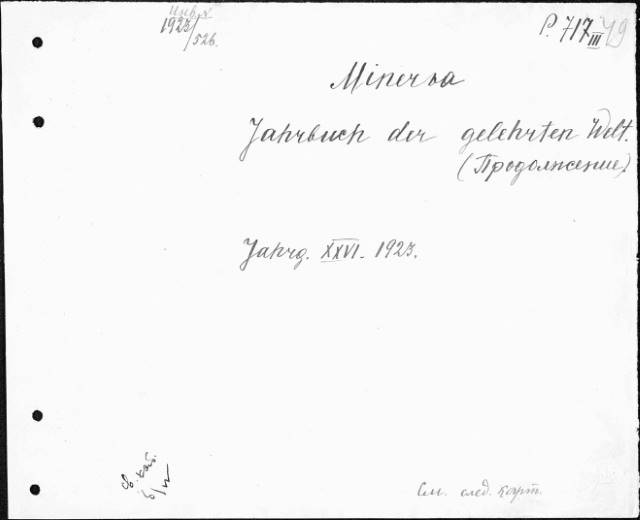 Инв. V
1923/526.
P. 717 III 49
Minerva
Jahrbuch der gelehrten Welt.
(Продолжение).
Jahrg. XXVI. 1923.
См. след. карт.